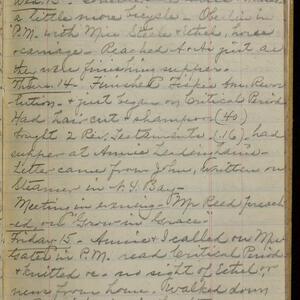 a little more bicycle - Oberlin in
P.M. with Mrs Steele + Ethel, horse
carriage - Reached A. + A's just as
they were finishing supper -
Thurs. 14 - Finished Fiske's Am. Revo-
lution - + just began on Critical Period
Had hair cut + shampoo (.40)
Bought 2 Rev. Testaments (.16) - had
supper at Annie
Letter came from John, written on
Steamer in N.Y. Bay -
Meeting in evening - Mr Reed preach-
ed on "Grow in Grace" -
Friday 15 - Annie + I called on Mrs
Gates in P.M. read Critical Period
+ knitted - no sight of Ethel or
news from home. Walked down